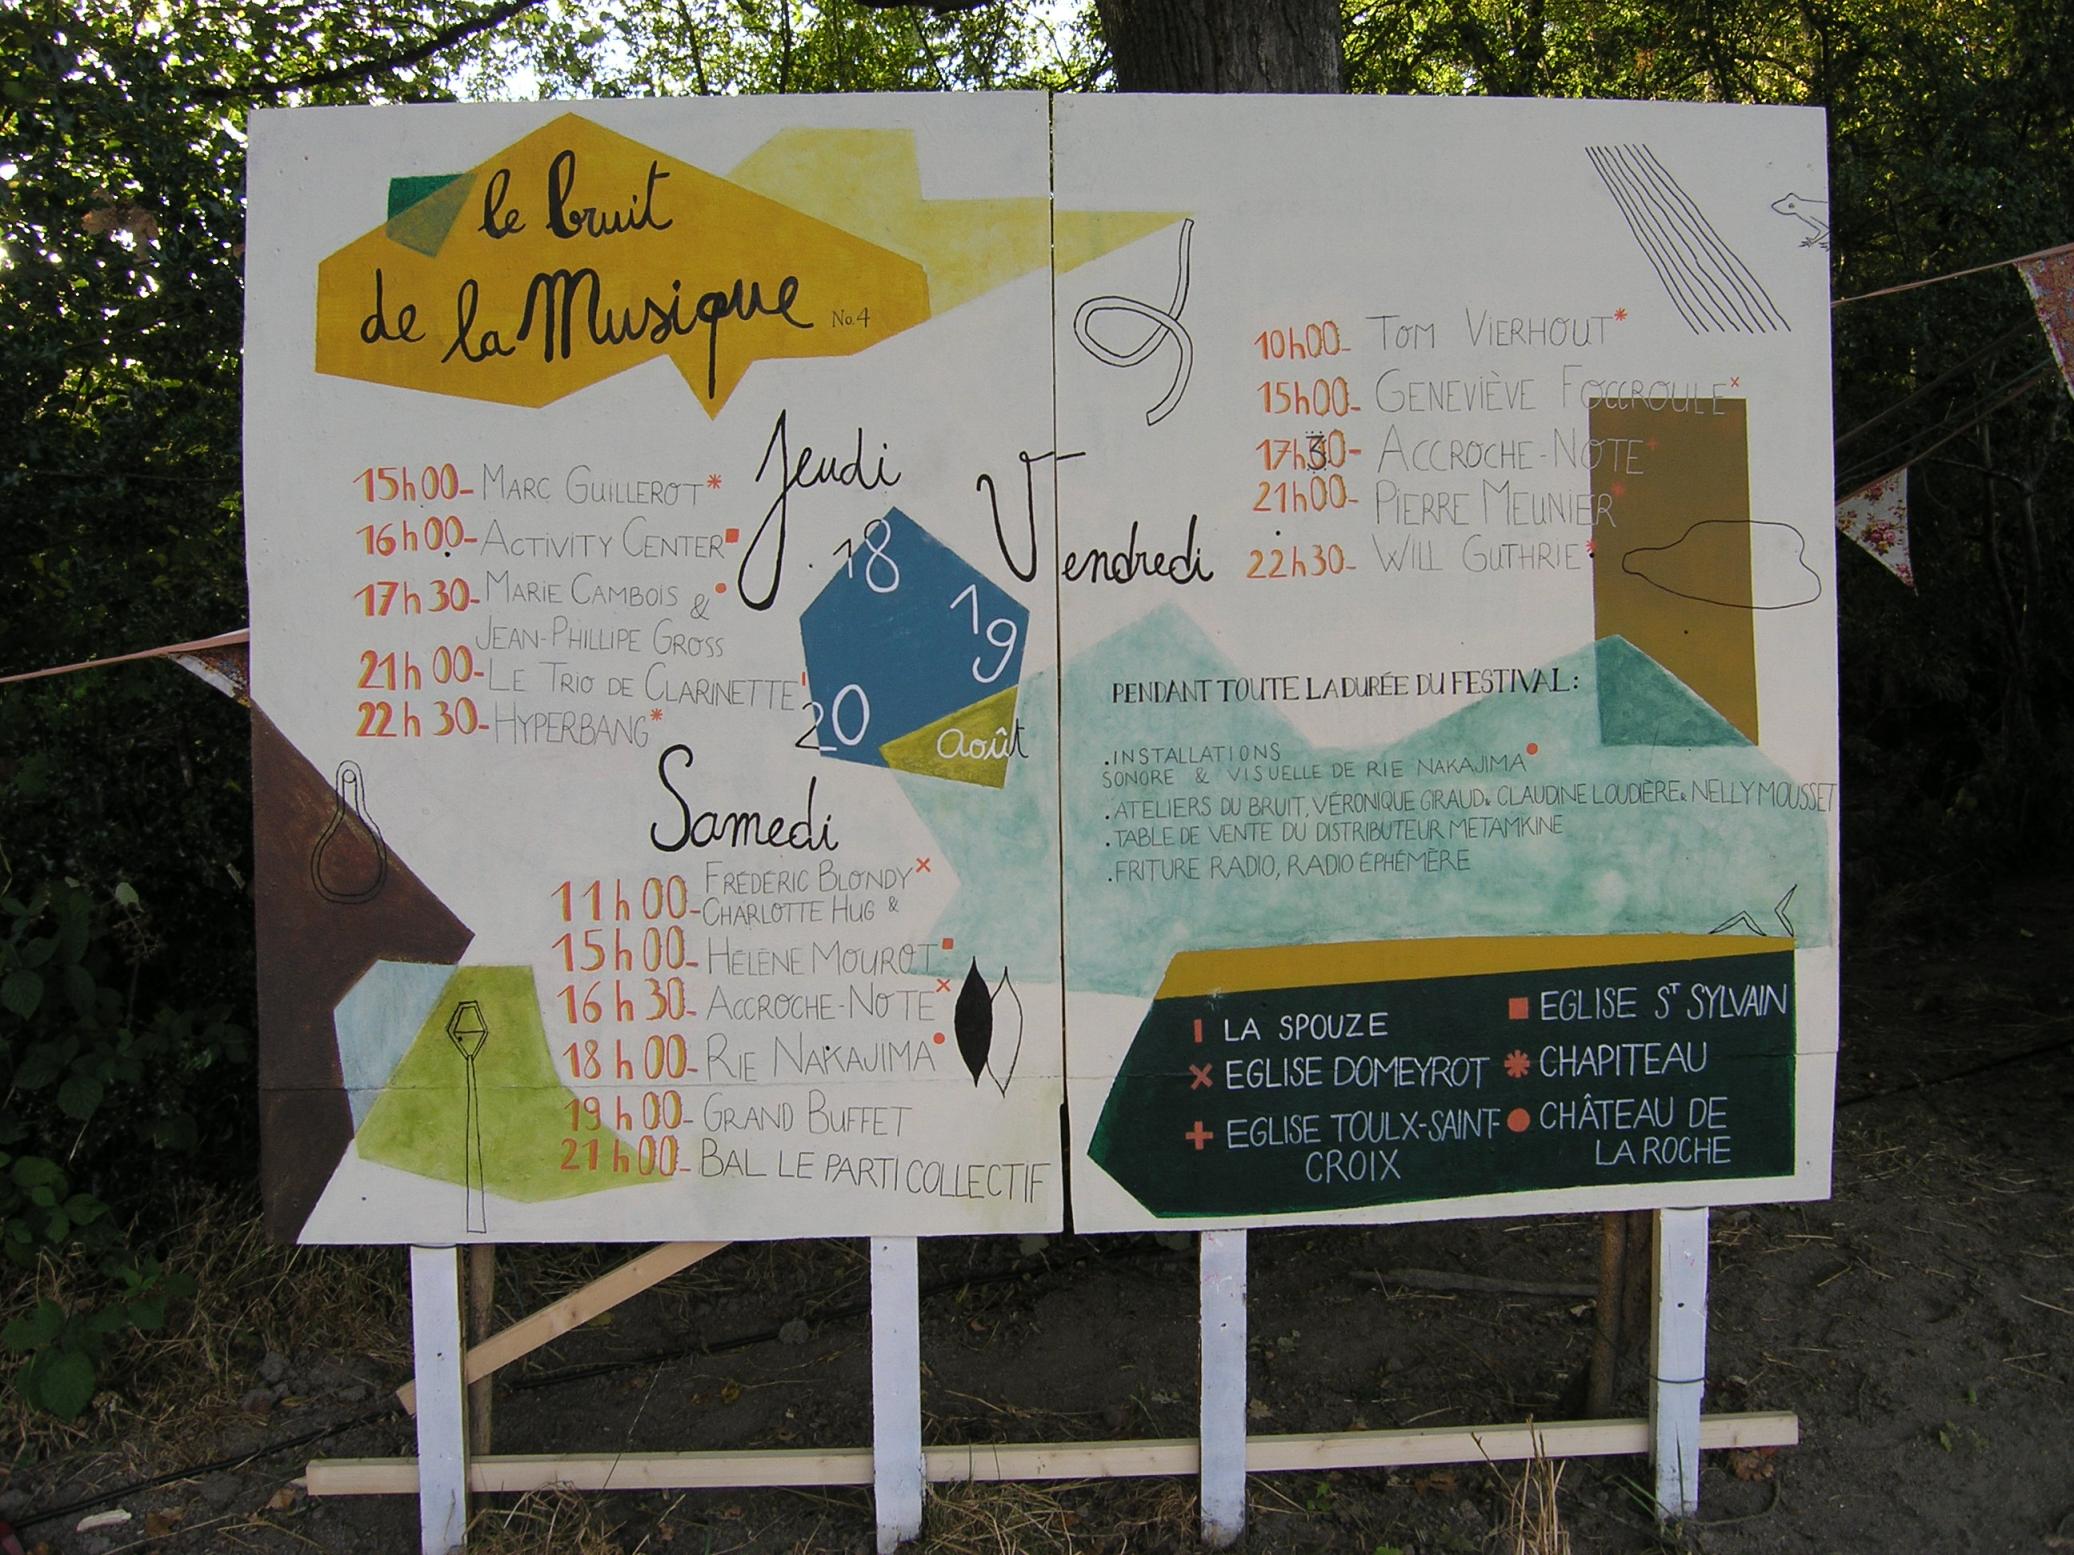 le bruit
de la Musique No.4
Jeudi
15h00- MARC GUILLEROT*
16h00- ACTIVITY CENTER
17h30- MARIE CAMBOIS &
JEAN-PHILLIPE GROSS
21h00- LE TRIO DE CLARINETTE
22h30- HYPERBANG*
18
19
20
Août
Vendredi
10h00- TOM VIERHOUT*
15h00- GENEVIÈVE FOCCROULE×
17h30- ACCROCHE-NOTE+
21h00- PIERRE MEUNIER*
22h30- WILL GUTHRIE*
Samedi
11h00- FRÉDÉRIC BLONDY×
CHARLOTTE HUG &
15h00- HÉLÈNE MOUROT
16h30- ACCROCHE-NOTE×
18h00- RIE NAKAJIMA
19h00- GRAND BUFFET
21h00- BAL LE PARTI COLLECTIF
PENDANT TOUTE LA DURÉE DU FESTIVAL:
.INSTALLATIONS
SONORE & VISUELLE DE RIE NAKAJIMA
.ATELIERS DU BRUIT, VÉRONIQUE GIRAUD & CLAUDINE LOUDIÈRE & NELLY MOUSSET
.TABLE DE VENTE DU DISTRIBUTEUR METAMKINE
.FRITURE RADIO, RADIO ÉPHÉMÈRE
LA SPOUZE
× EGLISE DOMEYROT
+ EGLISE TOULX-SAINT-
CROIX
EGLISE ST SYLVAIN
* CHAPITEAU
CHÂTEAU DE
LA ROCHE